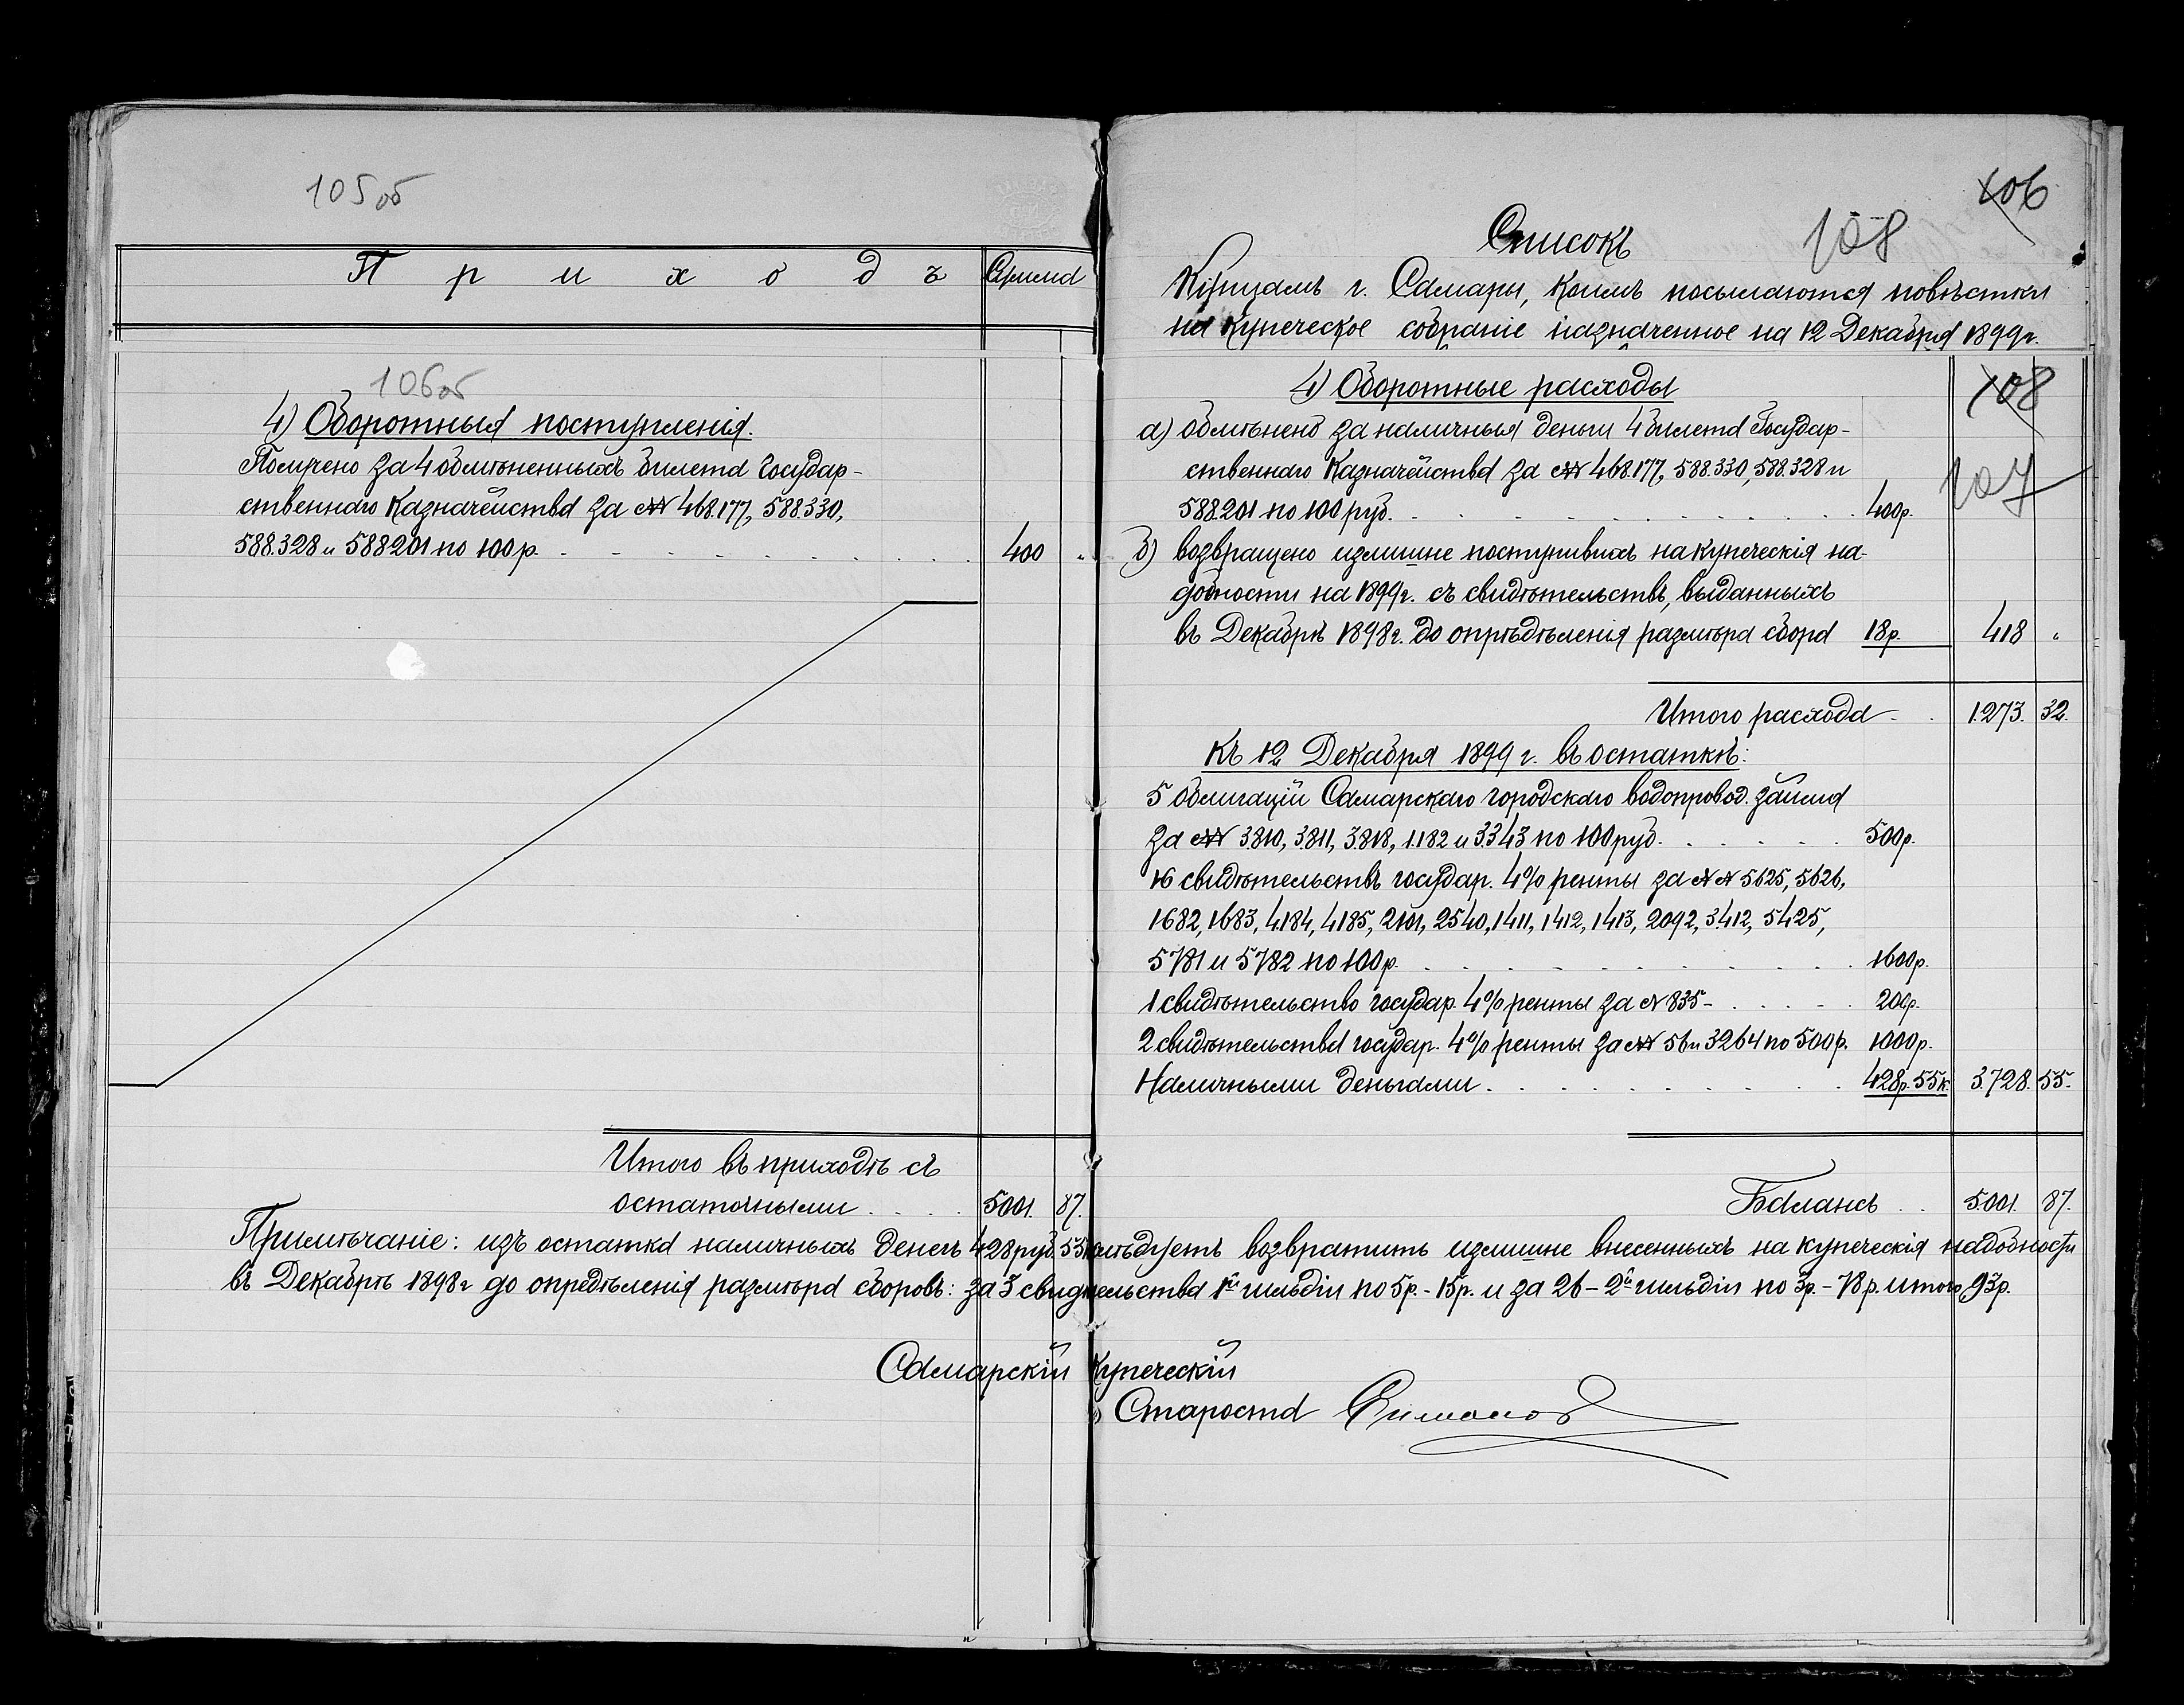 105 об
Приходъ Сумма
106 об
4) Оборотныя поступленія.
Получено за 4 обмѣненныхъ билета Государ-
ственнаго Казначейства за №№ 468.177, 588.330,
588.328 и 588201 по 100 р. 400 "
Итого въ приходѣ съ
остаточными 5001. 87.
106
108
Списокъ
Купцамъ г. Самары, коимъ посылаются повѣстки
на купеческое собраніе назначенное на 12 Декабря 1899 г.
108
107
4) Оборотные расходы
а) обмѣнено за наличныя деньги 4 билета Государ-
ственнаго Казначейства за №№ 468.177, 588.330, 588.328 и
588.201 по 100 руб. 400 р.
б) возвращено излишне поступившихъ на купеческія на-
добности на 1899 г. съ свидѣтельствъ, выданныхъ
въ Декабрѣ 1898 г. до опредѣленія размѣра сбора 18 р. 418 "
Итого расхода 1.273. 32.
Къ 12 Декабря 1899 г. въ остаткѣ:
5 облигацій Самарскаго городскаго водопровод. займа
за №№ 3.810, 3.811, 3.818, 1.182 и 3.343 по 100 руб. 500 р.
16 свидѣтельствъ государ. 4% ренты за №№ 5625, 5626,
1682, 1683, 4.184, 4185, 2101, 2540, 1411, 1412, 1413, 2092, 3.412, 5425,
5781 и 5782 по 100 р. 1600 р.
1 свидѣтельство государ. 4% ренты за № 835 - 200 р.
2 свидѣтельства государ. 4% ренты за №№ 56 и 3264 по 500 р. 1000 р.
Наличными деньгами 428 р. 55 к. 3.728. 55.
Балансъ 5.001. 87.
Примѣчаніе: изъ остатка наличныхъ денегъ 428 руб. 55 к слѣдуетъ возвратить излишне внесенныхъ на купеческія надобности
въ Декабрѣ 1898 г до опредѣленія размѣра сборовъ: за 3 свидѣтельства 1й гильдіи по 5 р. - 15 р. и за 26 - 2й гильдіи по 3 р. - 78 р. итого 93 р.
Самарскій Купеческій
Староста